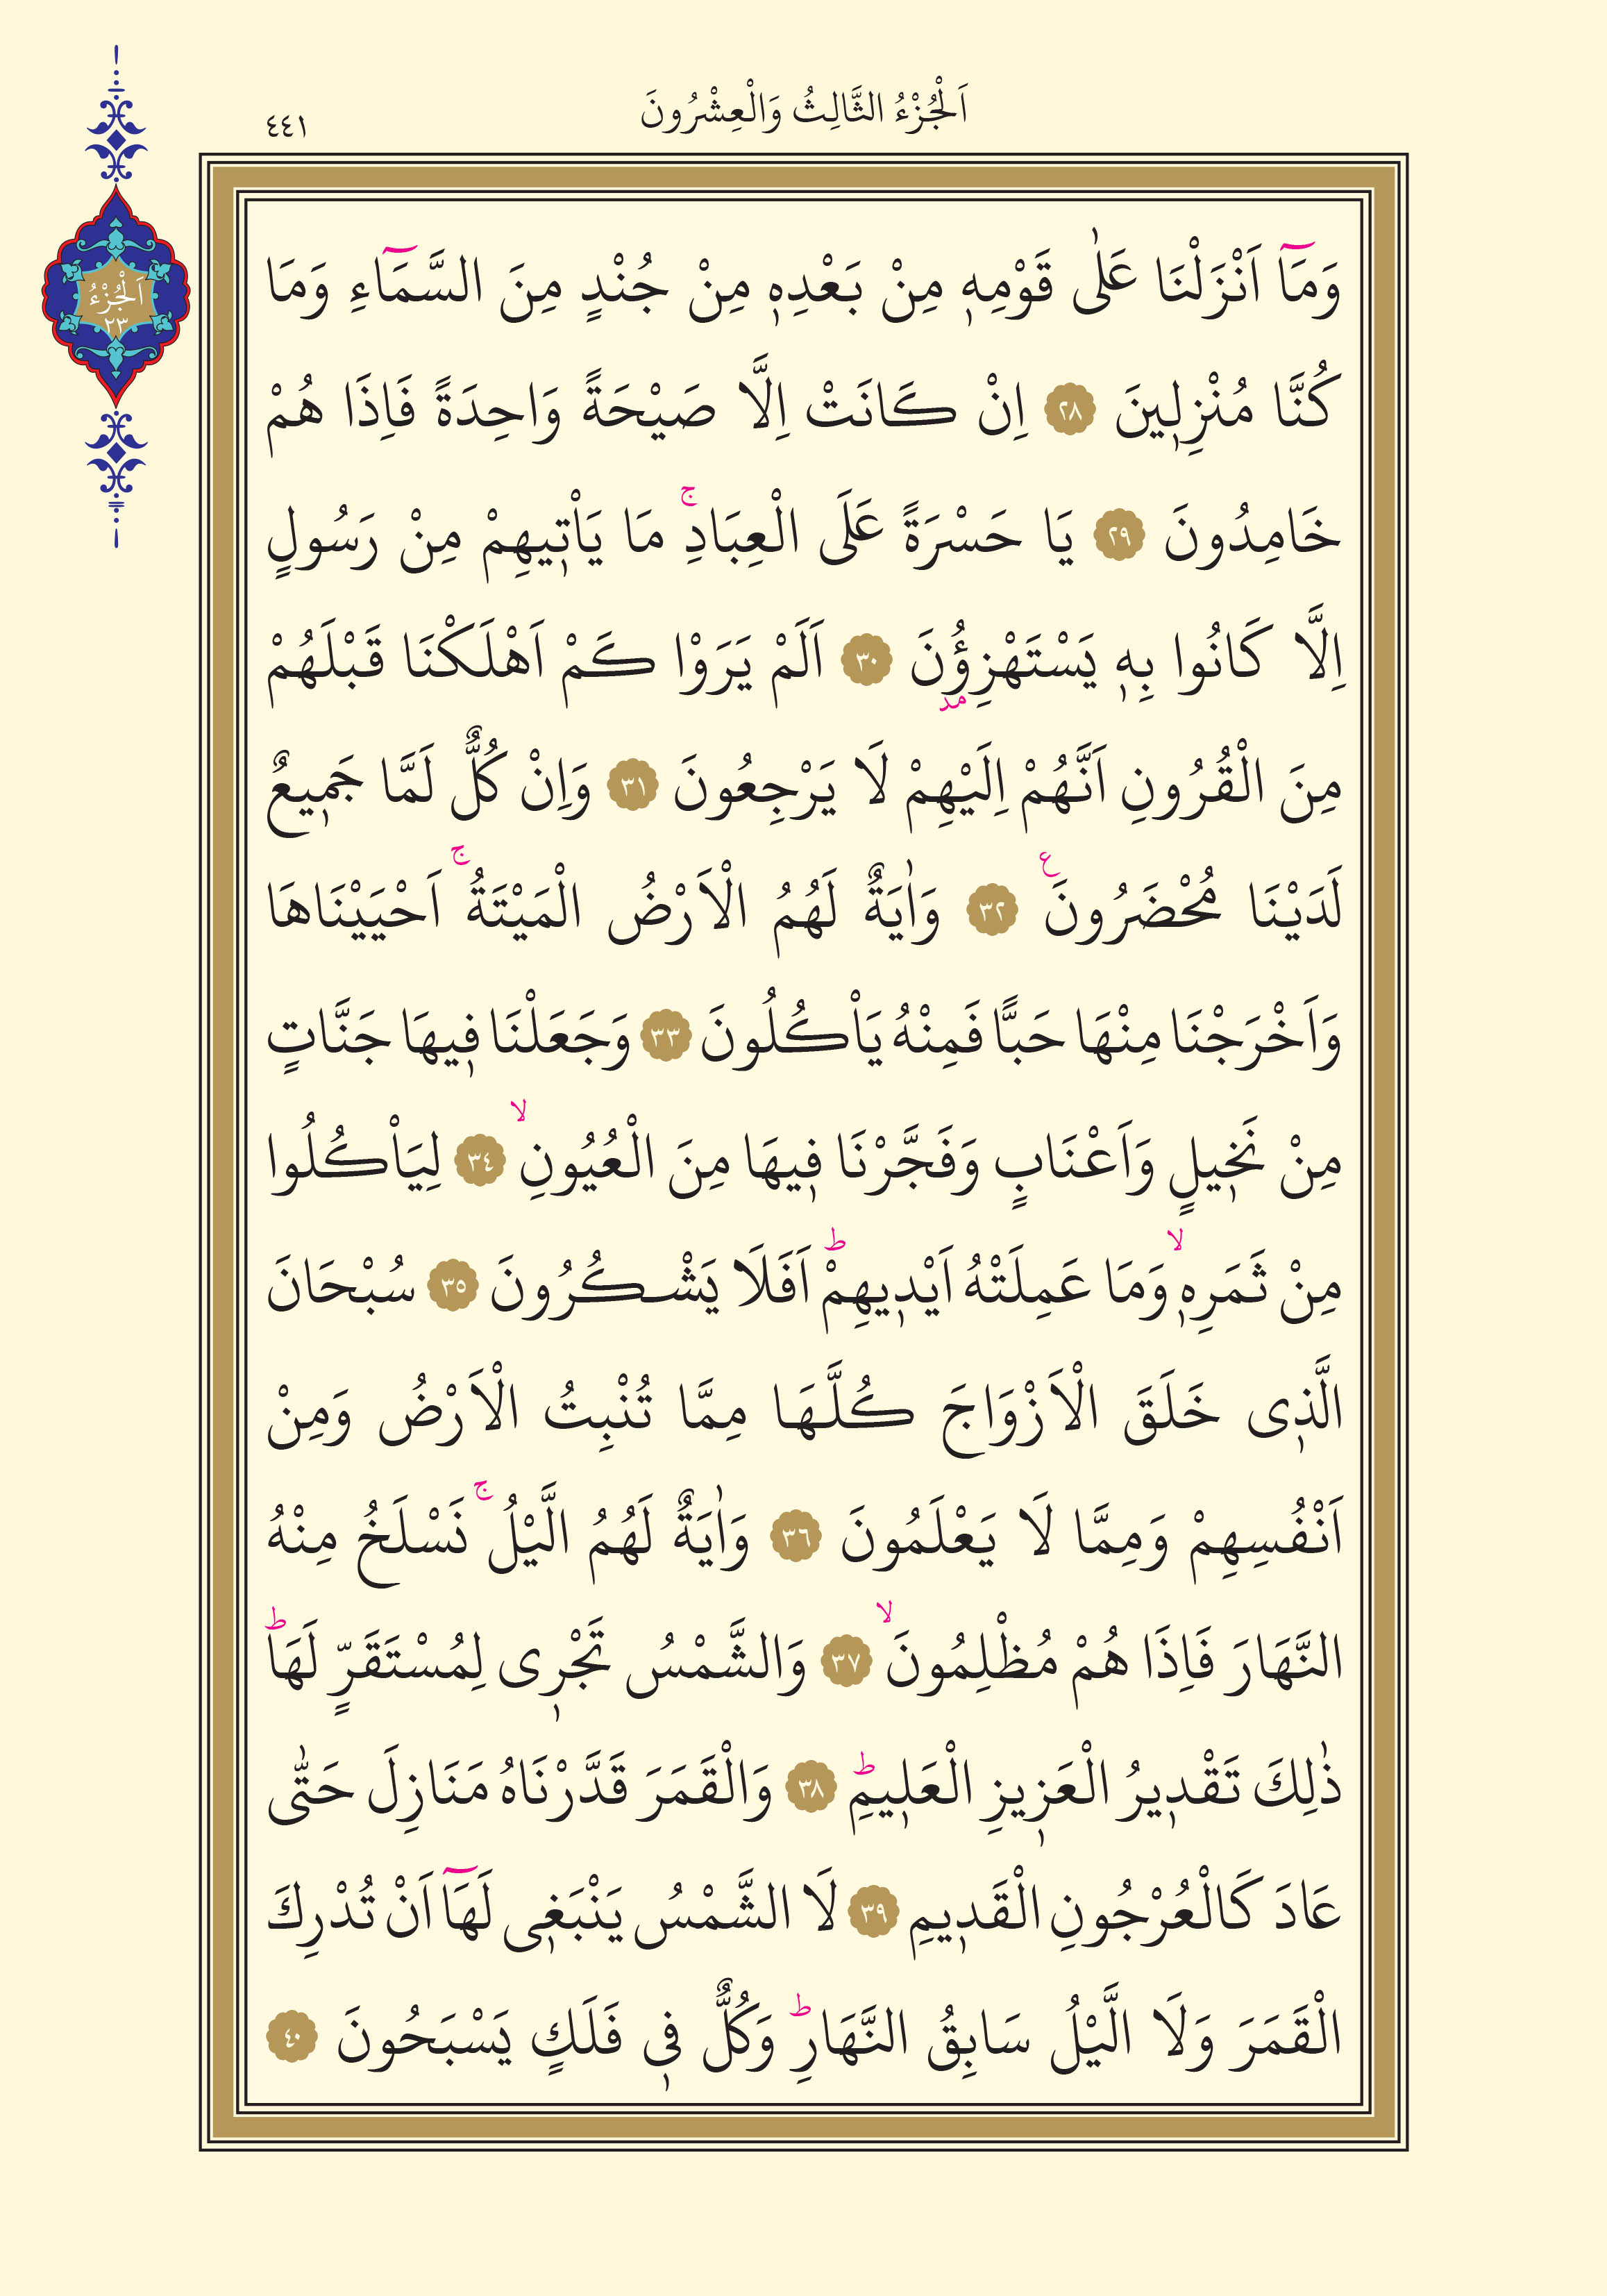 اَلْجُزْءُ الثَّالِثُ وَالْعِشْرُونَ
٤٤١
اَلْجُزْءُ
٢٣
وَمَٓا اَنْزَلْنَا عَلٰى قَوْمِهٖ مِنْ بَعْدِهٖ مِنْ جُنْدٍ مِنَ السَّمَٓاءِ وَمَا
كُنَّا مُنْزِلٖينَ ﴿٢٨﴾ اِنْ كَانَتْ اِلَّا صَيْحَةً وَاحِدَةً فَاِذَا هُمْ
خَامِدُونَ ﴿٢٩﴾ يَا حَسْرَةً عَلَى الْعِبَادِۚ مَا يَاْتٖيهِمْ مِنْ رَسُولٍ
اِلَّا كَانُوا بِهٖ يَسْتَهْزِؤُ۫نَ ﴿٣٠﴾ اَلَمْ يَرَوْا كَمْ اَهْلَكْنَا قَبْلَهُمْ
مِنَ الْقُرُونِ اَنَّهُمْ اِلَيْهِمْ لَا يَرْجِعُونَ ﴿٣١﴾ وَاِنْ كُلٌّ لَمَّا جَمٖيعٌ
لَدَيْنَا مُحْضَرُونَ۟ ﴿٣٢﴾ وَاٰيَةٌ لَهُمُ الْاَرْضُ الْمَيْتَةُۚ اَحْيَيْنَاهَا
وَاَخْرَجْنَا مِنْهَا حَبًّا فَمِنْهُ يَاْكُلُونَ ﴿٣٣﴾ وَجَعَلْنَا فٖيهَا جَنَّاتٍ
مِنْ نَخٖيلٍ وَاَعْنَابٍ وَفَجَّرْنَا فٖيهَا مِنَ الْعُيُونِۙ ﴿٣٤﴾ لِيَاْكُلُوا
مِنْ ثَمَرِهٖۙ وَمَا عَمِلَتْهُ اَيْدٖيهِمْؕ اَفَلَا يَشْكُرُونَ ﴿٣٥﴾ سُبْحَانَ
الَّذٖى خَلَقَ الْاَزْوَاجَ كُلَّهَا مِمَّا تُنْبِتُ الْاَرْضُ وَمِنْ
اَنْفُسِهِمْ وَمِمَّا لَا يَعْلَمُونَ ﴿٣٦﴾ وَاٰيَةٌ لَهُمُ الَّيْلُۚ نَسْلَخُ مِنْهُ
النَّهَارَ فَاِذَا هُمْ مُظْلِمُونَۙ ﴿٣٧﴾ وَالشَّمْسُ تَجْرٖى لِمُسْتَقَرٍّ لَهَاؕ
ذٰلِكَ تَقْدٖيرُ الْعَزٖيزِ الْعَلٖيمِؕ ﴿٣٨﴾ وَالْقَمَرَ قَدَّرْنَاهُ مَنَازِلَ حَتّٰى
عَادَ كَالْعُرْجُونِ الْقَدٖيمِ ﴿٣٩﴾ لَا الشَّمْسُ يَنْبَغٖى لَهَٓا اَنْ تُدْرِكَ
الْقَمَرَ وَلَا الَّيْلُ سَابِقُ النَّهَارِؕ وَكُلٌّ فٖى فَلَكٍ يَسْبَحُونَ ﴿٤٠﴾